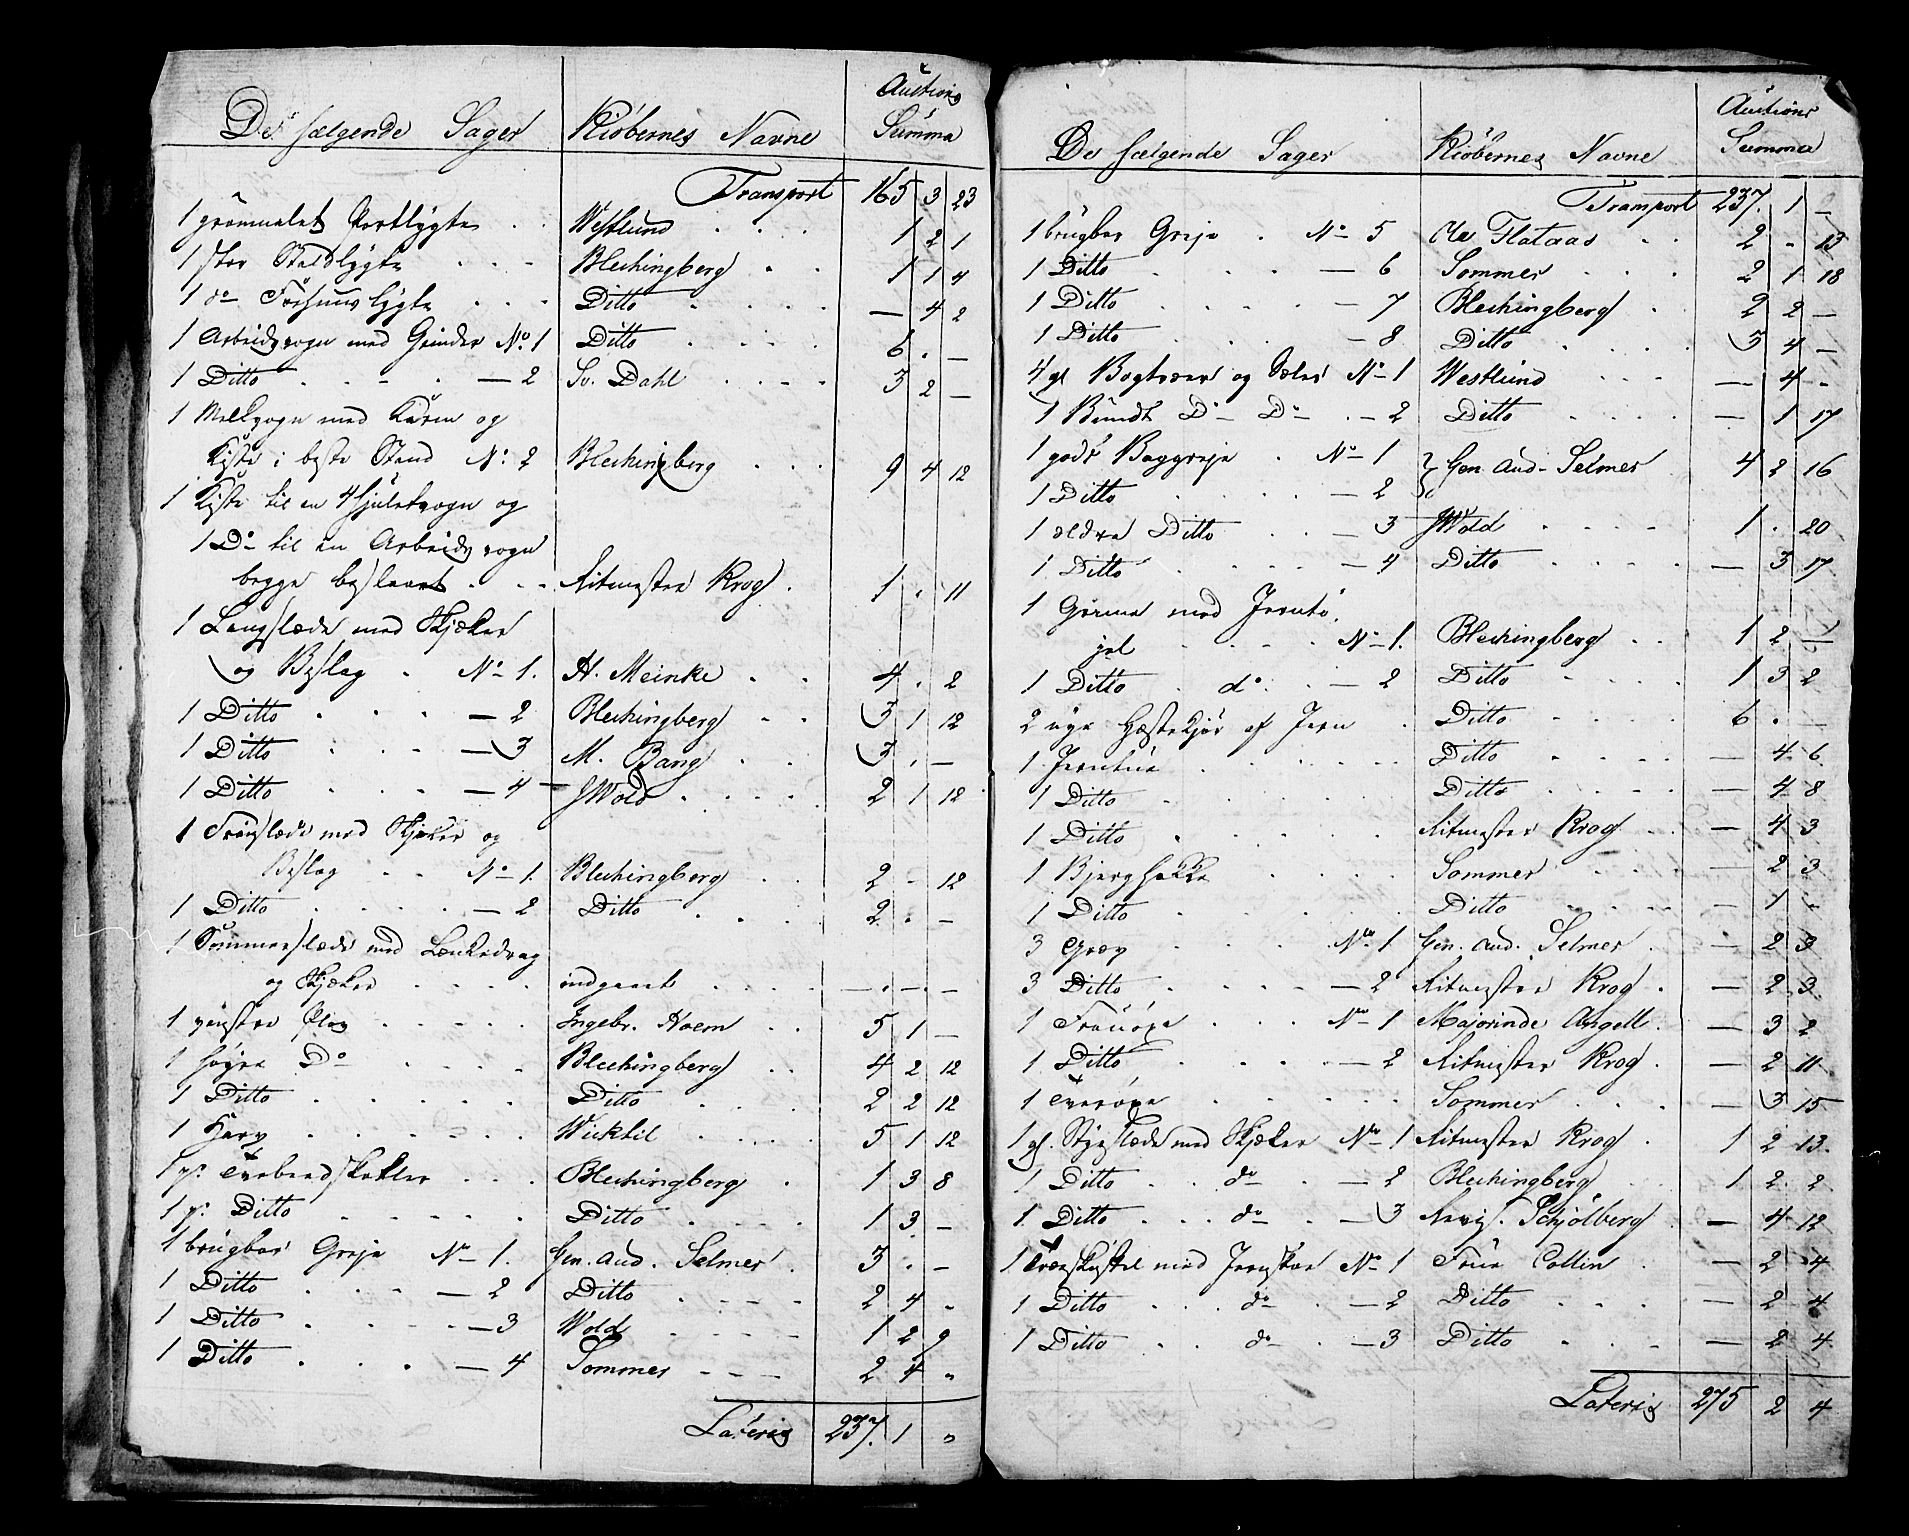 De sælgende Sager Kiöbernes Navne Auctions Summa
Transport 165 3 23
1 grönmalet Portlygte . . Westlund . . . 1 2 1
1 stor Staldlygte . . . Blechingberg . . 1 1 4
1 do . . . Ditto . . . . — 4 2
1 Arbeidsvogn med Grinder No 1 Ditto . . . . 6 . —
1 Ditto . . . . — 2 Sv. Dahl . . . . 3 2 —
1 Melkvogn med Kurv og
Kiste i beste Stand No 2 Blechingberg . . . 9 4 12
1 Kiste til en 4 Hjuletvogn og
1 Do til en Arbeidsvogn
begge beslaaet . . . Ritmester Krog . 1 . 11
1 Langslæde med Skjæker
og Beslag . No 1. H. Meinke . . 4 . 2
1 Ditto . . . — 2 Blechingberg . . 3 1 12
1 Ditto . . . — 3 M. Bang . . 3 . —
1 Ditto . . . — 4 JWold . . . . 2 1 12
1 med Skjæker og
Beslag . . No 1. Blechingberg . . 2 - 12
1 Ditto . . . . — 2 Ditto . . . 2 . —
1 Sommerslæde med Lænkedrag
og Skjæker . . . . indgaaet . . . . — . — . —
1 venstre Plog . . . . . Ingebr. Holm . . 5 1 —
1 høyre Do . . . . Blechingberg . . 4 2 12
1 Ditto . . . . . Ditto . . . 2 2 12
1 Harv . . . . . . Wicktil . . . . 5 1 12
1 pr Tvebendskokler . . . Blechingberg . 1 3 8
1 pr Ditto . . . . . Ditto . . . . 1 3 —
1 brugbar Greje No 1. Gen. Aud. Selmer . 3 . —
1 Ditto . . . . — 2 Ditto . . . . 2 4 "
1 Ditto . . . . — 3 Wold . . . . 1 2 9
1 Ditto . . . — 4 Sommer . . . 2 4 "
Lateris 237. 1 "
De sælgende Sager Kiöbernes Navne Auctions Summa
Transport 237. 1 —
1 brugbar Greje . No 5 Ole Flataas . . 2 " 13
1 Ditto . . . . — 6 Sommer . . . 2 1 18
1 Ditto . . . . — 7 Blechingberg . 2 2 —
1 Ditto . . . . — 8 Ditto . . . . 3 4 —
4 gl Bogtræer og Sæler No 1 Westlund . . . — 4 "
1 Bundt Do Do . — 2 Ditto . . . . — 1 17
1 godt Baggreje . No 1 } Gen. Aud. Selmer . 4 2 16
1 Ditto . . . . — 2
1 ældre Ditto . . — 3 JWold . . . . 1 . 20
1 Ditto . . . . — 4 Ditto . . . . — 3 17
1 Grime med Jerntö,
jel . . . . No 1. Blechingberg . . 1 2 —
1 Ditto . do . . — 2 Ditto . . . . 1 3 2
2 nye Hæstekjör af Jern . Ditto . . . . 6 . —
1 . . . . . . Ditto . . . . — 4 6
1 Ditto . . . . . . Ditto . . . . — 4 8
1 Ditto . . . . . . Ritmester Krog . . — 4 3
1 Bjerghakke . . . . Sommer . . . — 2 3
1 Ditto . . . . . . Ditto . . . . — 1 -
3 Grev . . . . No 1 Gen. Aud. Selmer . — 2 3
3 Ditto . . . . — 2 Ritmester Krog . — 2 3
1 . . . No 1 Majorinde Angell . — 3 2
1 Ditto . . . . — 2 Ritmester Krog . — 2 11
1 Tverøxe . . . . . . Sommer . . . — 3 15
1 gl. med Skjæker No 1 Ritmester Krog . 1 2 13.
1 Ditto . . do . — 2 Blechingberg . . 1 2 2
1. Ditto . . . do . — 3 Revis. Schjölberg . — 4 12
1 Træskuffel med Jernskoe No 1 Frue Collin . — 2 4
1 Ditto . . . do . — 2 Ditto . . . — 2 4
1 Ditto . . . do . — 3 Ditto . . . — 2 4
Lateris 275 2 4